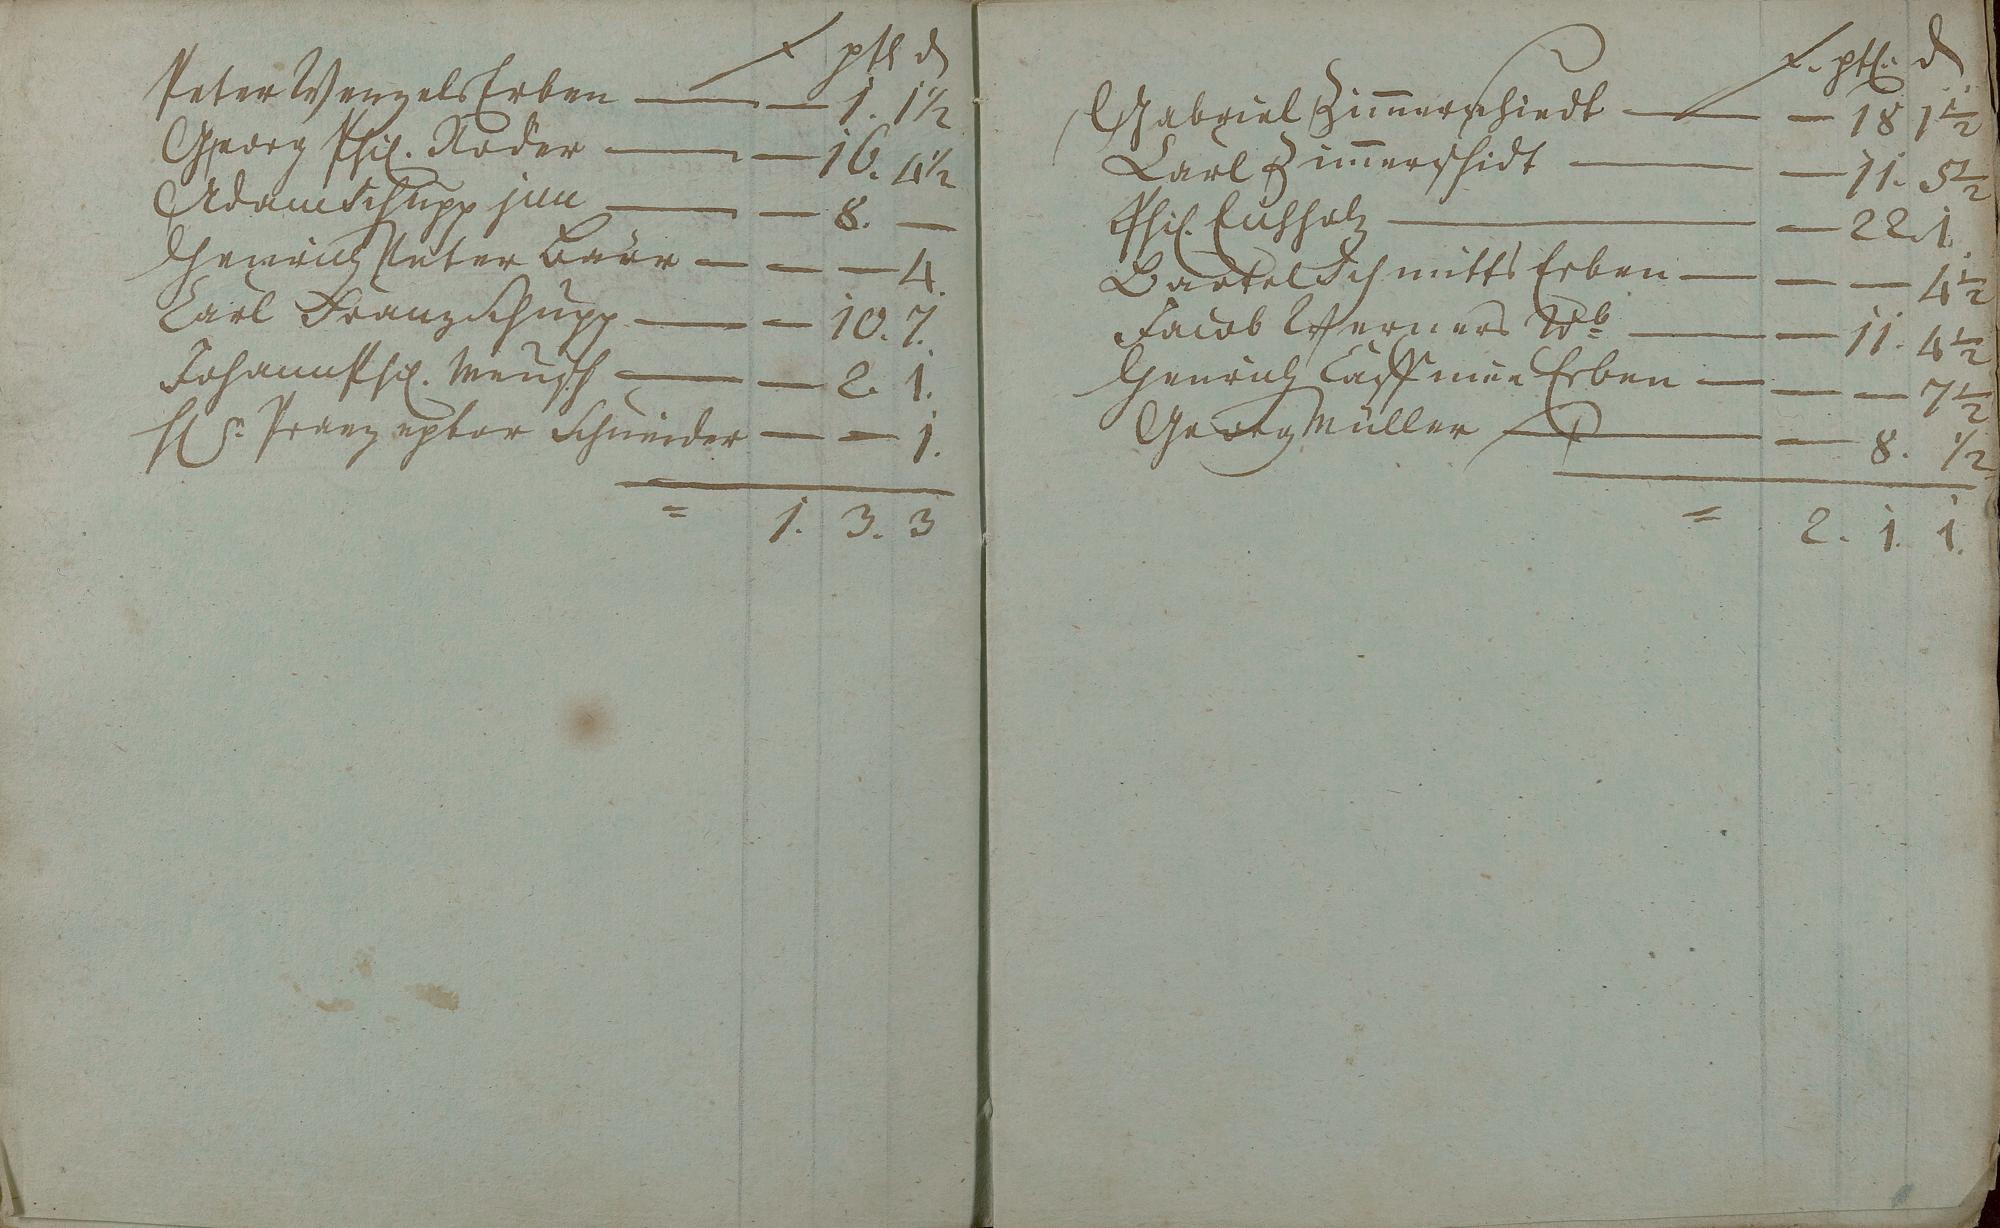 x ptl d
Peter Wenzels Erben — — 1. 1½
Georg Phil. Roder — — 16. 4½
Adam Schupp jun — — 8. —
Henrich Peter Baür — — — 4.
Carl Franz Schupp — — 10. 7.
Johann Phil. Meusch — — 2. 1.
H Praezeptor Schneider — — 1.
= 1. 3. 3
x. ptl. d
Gabriel Zim̅erschiedt — — 18 1½
Carl Zim̅erschidt — — 11. 5½
Phil. Eichholz — — 22. 1.
Bartel Schmitts Erben — — — 4½
Jacob Werners Wb — — 11. 4½
Henrich Erben — — — 7½
Georg Müller — — 8. ½
= 2. 1. 1.